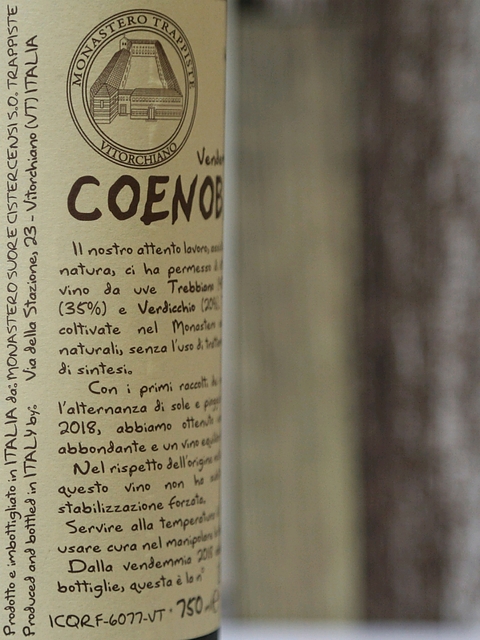 MONASTERO TRAPPISTE
VITORCHIANO
COENOB
Il nostro attento lavoro,
natura, ci ha permesso
vino da uve Trebbiano
(35%) e Verdicchio (20%)
coltivate nel
naturali, senza l'uso di
di sintesi.
Con i primi raccolti,
l'alternanza di sole e
2018, abbiamo ottenuto
abbondante e un vino
Nel rispetto dell'origine
questo vino non ha
stabilizzazione forzata.
Servire alla temperatura
usare cura nel
Dalla vendemmia 2018
bottiglie, questa è la n°
ICQRF-6077-VT • 750
Prodotto e imbottigliato in ITALIA da: MONASTERO SUORE CISTERCENSI S.O. TRAPPISTE
Produced and bottled in ITALY by: Via della Stazione, 23 - Vitorchiano (VT) ITALIA